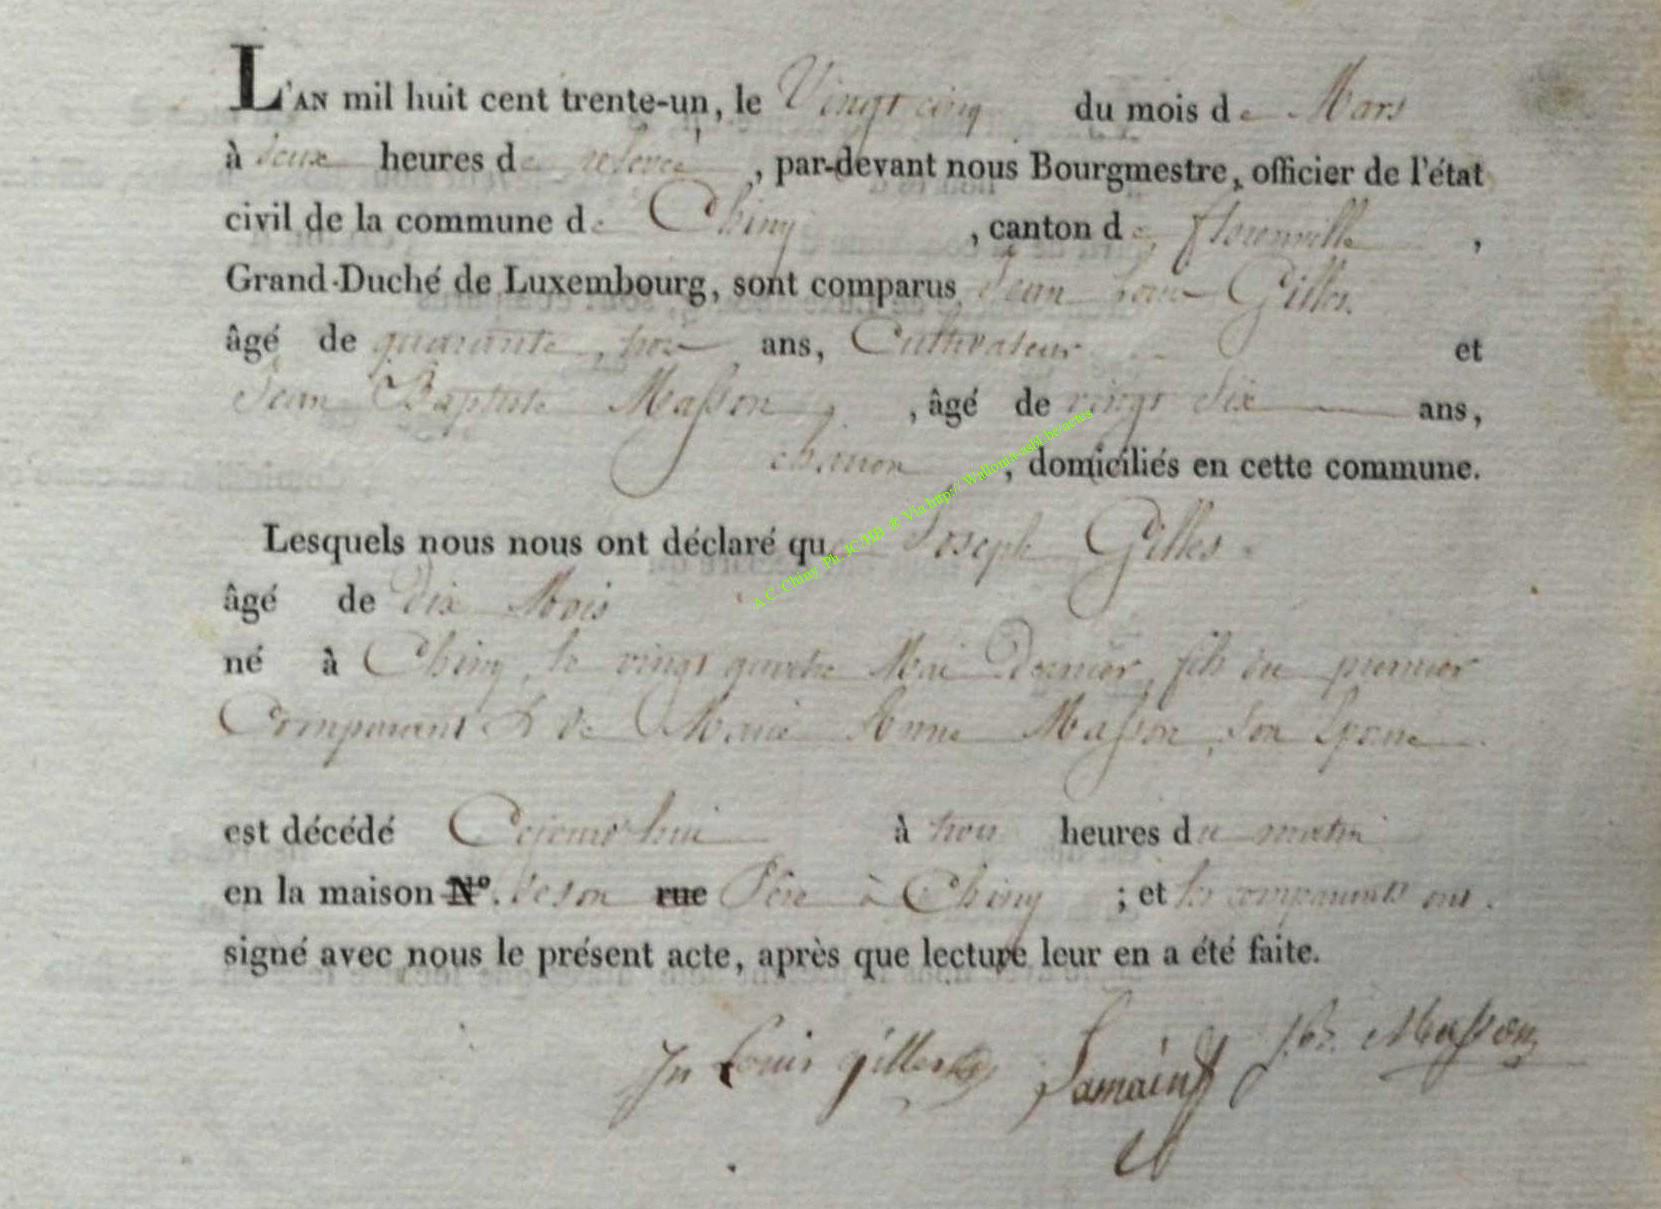 L'AN mil huit cent trente-un, le Vingt cinq du mois de Mars
à deux heures de relevée, par-devant nous Bourgmestre, officier de l'état
civil de la commune de Chiny, canton de florenville,
Grand-Duché de Luxembourg, sont comparus Jean Louis Gilles.
âgé de quarante trois ans, Cultivateur et
Jean Baptiste Masson, âgé de vingt six ans,
, domiciliés en cette commune.
Lesquels nous nous ont déclaré que Joseph Gilles
âgé de dix Mois
né à Chiny, le vingt quatre Mai dernier, fils du premier
Comparant & de Marie Anne Masson, son Epouse
est décédé Cejourd'hui à trois heures du matin
en la maison N°. de son rue Père à Chiny ; et les comparants ont
signé avec nous le présent acte, après que lecture leur en a été faite.
Jn Louis gilles Lamain J.Bt. Masson
A C Chiny Ph JC HB @ Via http:// Wallonia-asbl.be/actes